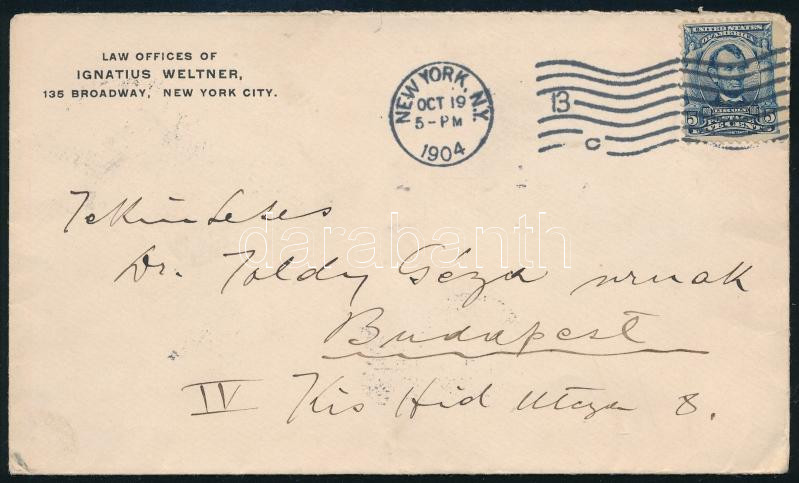 LAW OFFICES OF
IGNATIUS WELTNER,
135 BROADWAY, NEW YORK CITY.
NEW YORK, N.Y.
OCT 19
5-PM
1904
13
C
UNITED STATES
OF AMERICA
5 POSTAGE 5
FIVE CENTS
Tekintetes
Dr. Toldy Géza urnak
Budapest
IV Kis Hid utcza 8.
darabanth